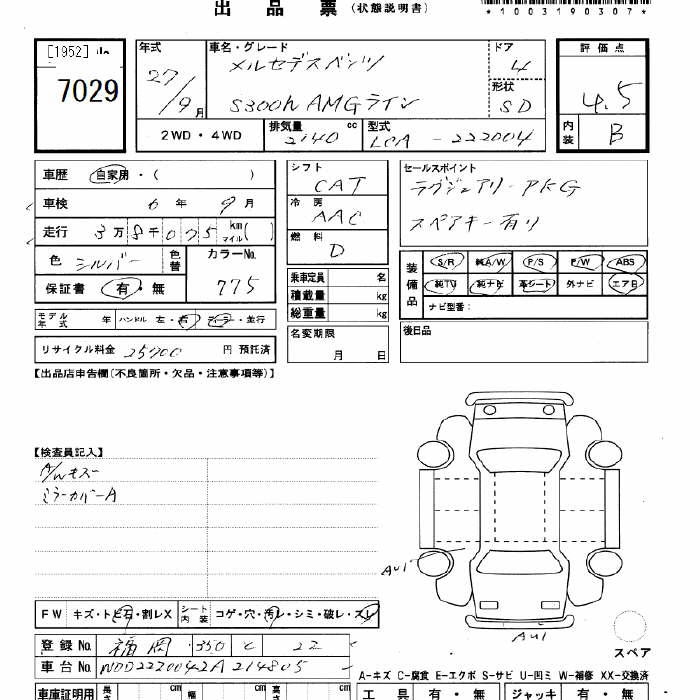 出品票 (状態説明書)
*1003190307*
[1952]
7029
年式 車名・グレード ドア 評価点
27/9月 メルセデスベンツ 4 4.5
形状
S300h AMGライン SD
2WD・4WD 排気量 2140 cc 型式 LCA-222004 内装 B
車歴 自家用・( )
シフト CAT
セールスポイント
ラグジュアリーPKG
車検 6年9月
冷房 AAC
スペアキー有り
走行 3万8千075 km マイル( )
燃料 D
色 シルバー 色替 カラーNo. 775
装備品 S/R 純A/W P/S P/W ABS
保証書 有・無
乗車定員 名
純TV 純ナビ 革シート 外ナビ エアB
積載量 kg
ナビ型番:
総重量 kg
モデル年式 年 ハンドル 左・右 ・並行
名変期限 月 日
後日品
リサイクル料金 25700 円 預託済
【出品店申告欄(不良箇所・欠品・注意事項等)】
【検査員記入】
ミラーカバーA
AU1
AU1
スペア
FW キズ・トビ石・割レX シート内装 コゲ・穴・汚レ・シミ・破レ・スレ
登録No. 福岡 350 22
車台No. WDD2220042A214805
A-キズ C-腐食 E-エクボ S-サビ U-凹ミ W-補修 XX-交換済
車庫証明用 長さ cm 幅 cm 高さ cm
工具 有・無 ジャッキ 有・無